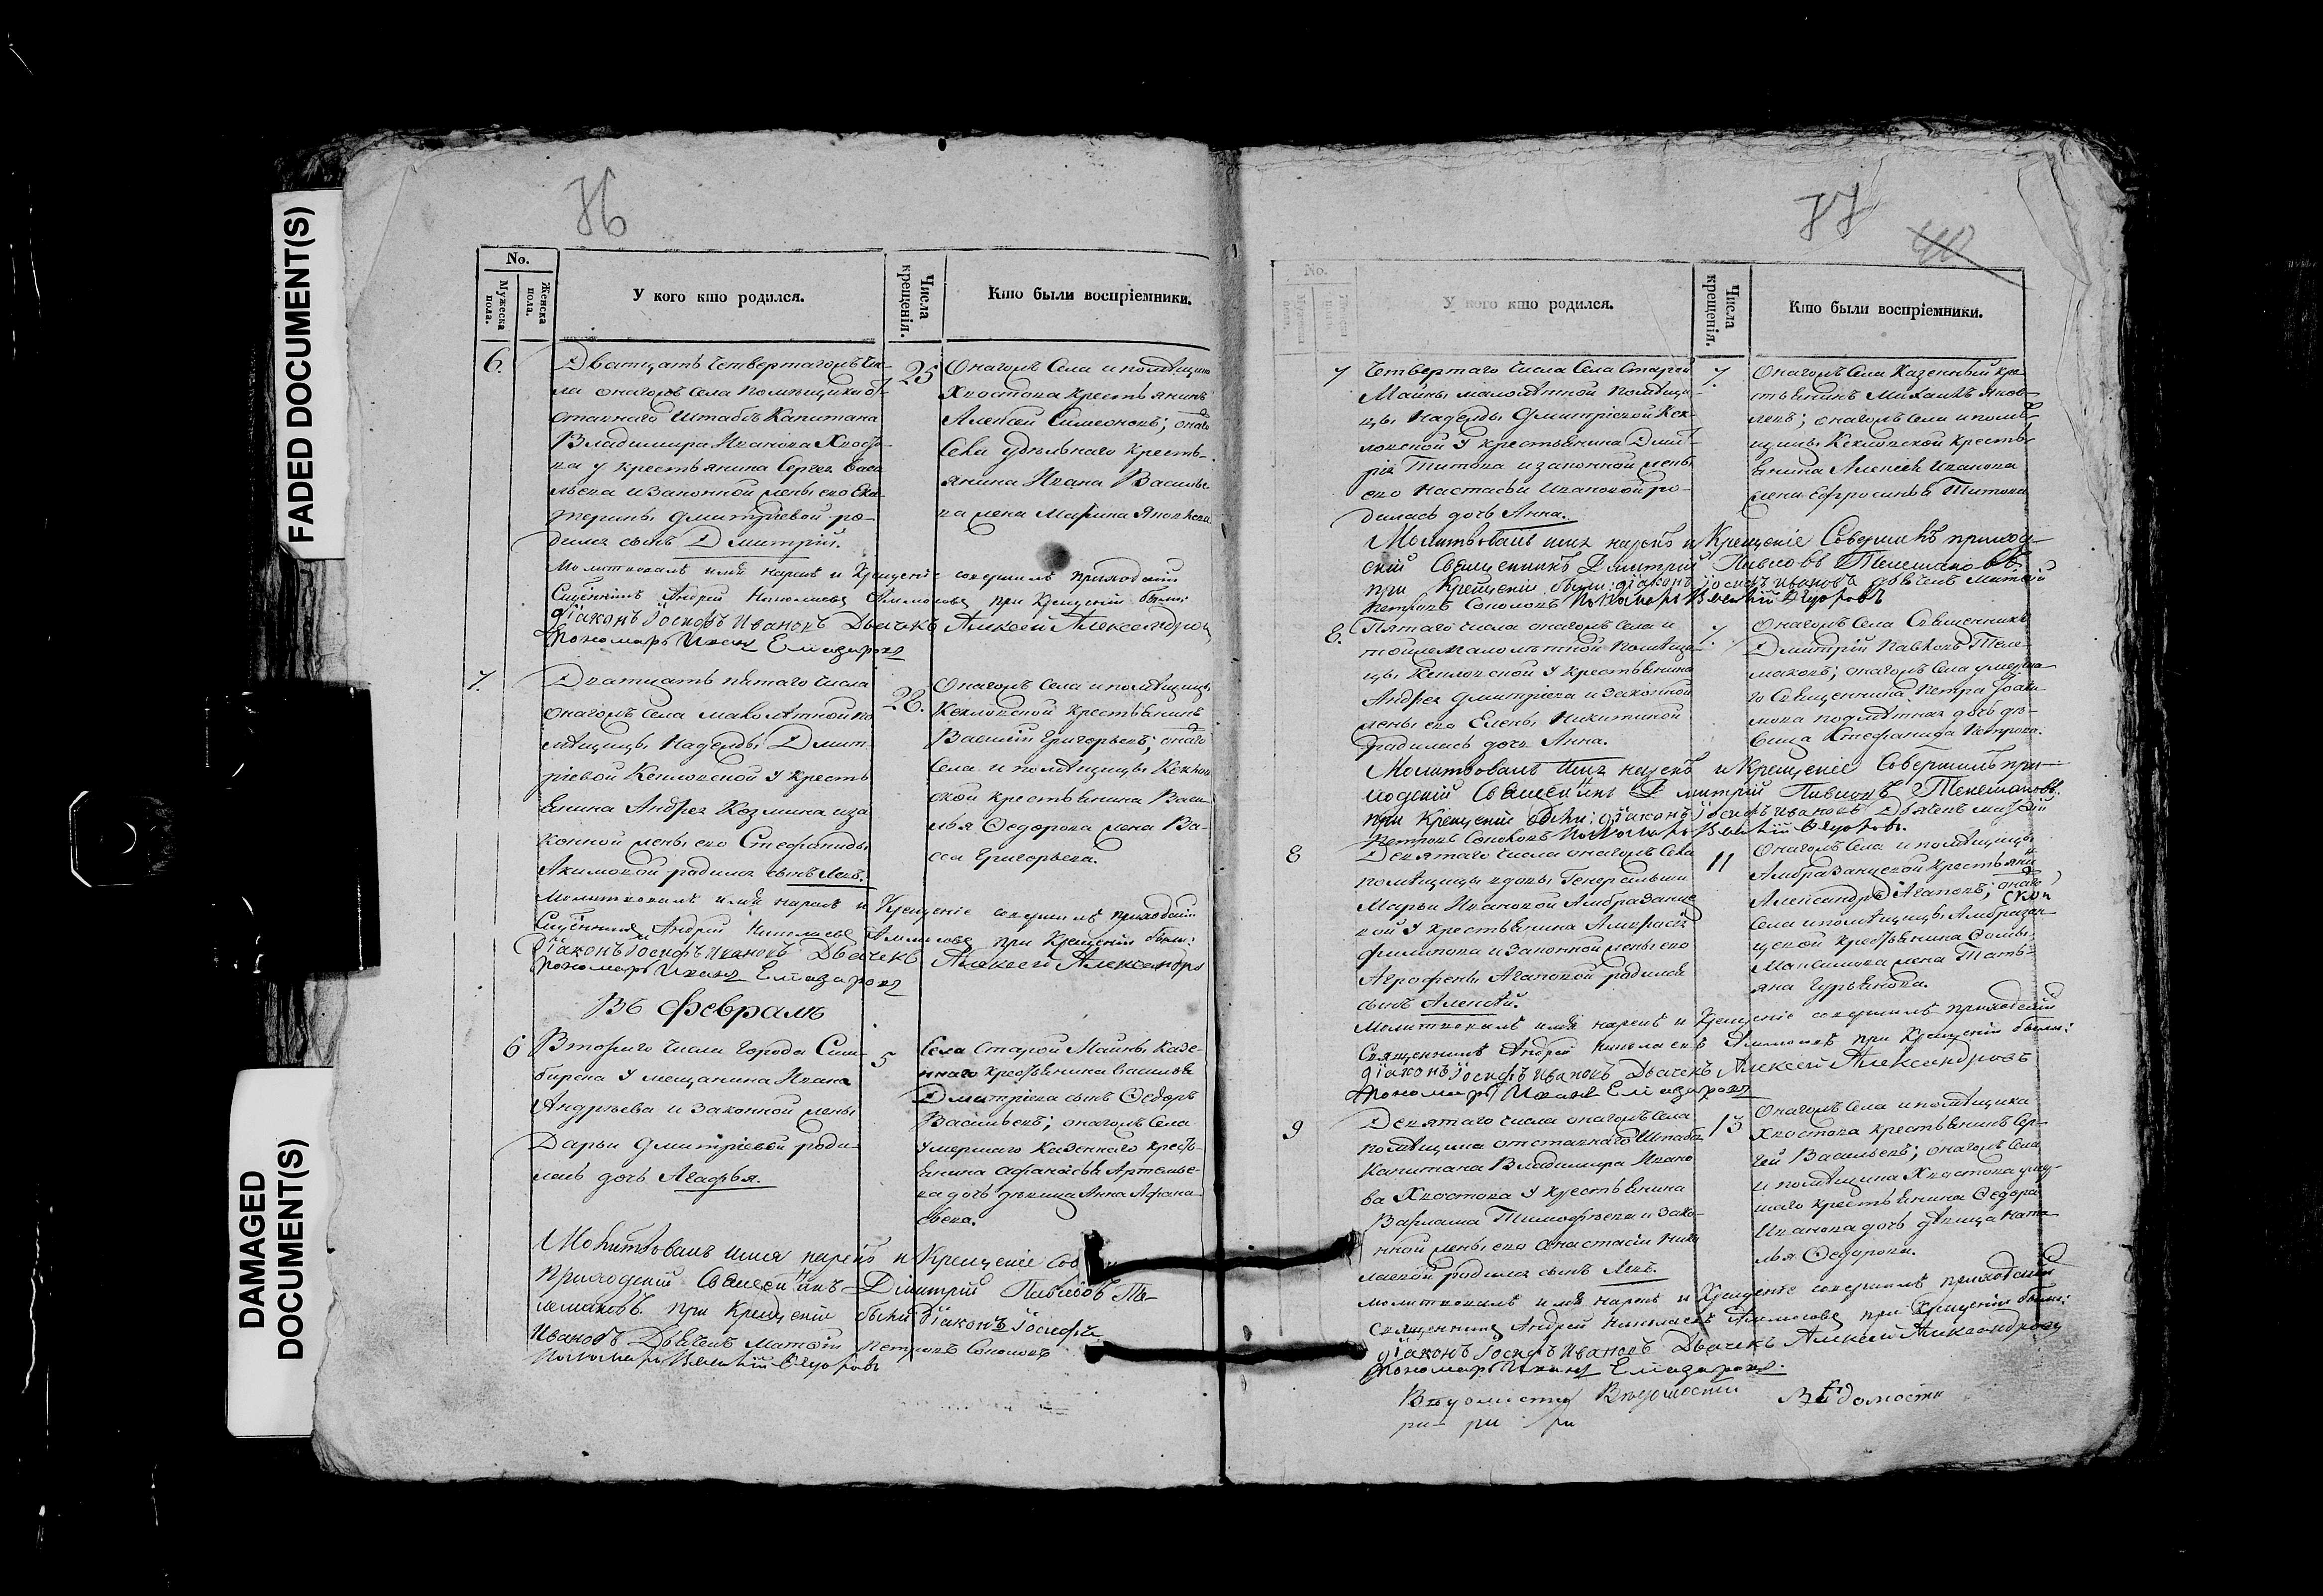 FADED DOCUMENT(S)
DAMAGED
DOCUMENT(S)
76
No.
Мужеска пола.
Женска пола.
У кого кто родился.
Числа крещенія.
Кто были воспріемники.
6.
Дватцать четвертагомъ Чи-
сла онагомъ Села помѣщика от-
ставнаго Штабсъ Капитана
Владимира Иванова Хвост-
ва у крестьянина Сергея Васи-
льева и законной жены его Ека-
терины Дмитріевой ро-
дился сынъ Дмитрій.
25
Онагомъ Села и помѣщика
Хвостова Крестьянинъ
Алексѣй Симеоновъ; онаго
Села удѣльнаго кресть-
янина Ивана Василье
ва жена Марина Яковлева
Молитвовалъ имя нарекъ и Крещеніе совершилъ приходскій
Сщенникъ Андрей Николаевъ при Крещеніи были:
діаконъ Іосифъ Ивановъ Дьячекъ Алексѣй Александровъ
Пономарь Иванъ Елизаровъ
7.
Дватцать пятаго числа
онагомъ Села малолѣтной по
мѣщицы Надежды Дмит-
ріевой Кекловской у кресть
янина Андрея Козмина и за
конной жены его Стефаниды
Акимовой родился сынъ Левъ.
28.
Онагомъ Села и помѣщицы
Кекловской крестьянинъ
Василій Григорьевъ; онаго
Села и помѣщицы Кеклов
ской крестьянина Васи-
лья Ѳедорова жена Ва-
сса Григорьева.
Молитвовалъ имя нарекъ и Крещеніе совершилъ приходскій
Сщенникъ Андрей Николаевъ при Крещеніи были:
діаконъ Іосифъ Ивановъ Дьячекъ Алексѣй Александро
Пономарь Иванъ Елизаровъ
Въ Февралѣ
6
Втораго числа города Сим-
бирска у мещанина Ивана
Андрѣева и законной жены
Дарьи Дмитріевой роди-
лась дочь Агафья.
5
Села Старой Майны Казе-
ннаго крестьянина Василья
Дмитріева сынъ Ѳедоръ
Васильевъ; онагомъ Села
умершаго Казеннаго кресть-
янина Афанасья Артемье-
ва дочь дѣвица Анна Афана-
сьева.
Молитвовалъ имя нарекъ и Крещеніе
Приходскій Священникъ Димитрій Павловъ Те-
лемаковъ при Крещеніи были Діаконъ Іосифъ
Ивановъ Дьячекъ Матвѣй Петровъ Соколовъ
77
40
No.
У кого кто родился.
Числа крещенія.
Кто были воспріемники.
7
Четвертаго числа Села Старой
Майны малолѣтной помѣщи-
цы Надежды Дмитріевой Кек-
ловской у крестьянина Дмит-
рія Титова и законной жены
его Настасьи Ивановой ро-
дилась дочь Анна.
7.
Онагомъ Села Казенный кре-
стьянинъ Михаилъ Яков-
левъ; онагомъ Села и помѣ-
щицы Кекловской кресть-
янина Алексѣя Иванова
жена Ефросинья Титова
Молитвовалъ имя нарекъ и Крещеніе Совершилъ приход-
скій Священникъ Дмитрій Павловъ Телемаковъ
при Крещеніи были: діаконъ Іосифъ Ивановъ дьячекъ Матвѣй
Петровъ Соколовъ
8.
Пятаго числа онагомъ Села и
тойже малолѣтной помѣщи-
цы Кекловской у крестьянина
Андрея Дмитріева и законной
жены его Елены Никитиной
родилась дочь Анна.
7.
Онагомъ Села Священникъ
Дмитрій Павловъ Теле-
маковъ; онагомъ Села умерша-
го Священника Петра Іоаки-
мова дочь дѣ-
вица Стефанида Петрова.
Молитвовалъ имя нарекъ и Крещеніе Совершилъ при-
ходскій Священникъ Дмитрій Павловъ Телемаковъ
при Крещеніи были: діаконъ Іосифъ Ивановъ Дьячекъ Матвѣй
Петровъ Соколовъ
8
Девятаго числа онагомъ Села
помѣщицы вдовы Генеральши
Марьи Ивановой Амбразанце
вой у крестьянина Амвросія
Филипова и законной жены его
Агрофены Агаповой родился
сынъ Алексѣй.
11
Онагомъ Села и помѣщицы
Амбразанцевой крестьянинъ
Александръ Агаповъ; онаго
Села и помѣщицы Амбразан-
цевой крестьянина Ѳомы
Максимова жена Тать-
яна Гурьянова.
Молитвовалъ имя нарекъ и Крещеніе совершилъ приходскій
Священникъ Андрей Николаевъ при Крещеніи были:
діаконъ Іосифъ Ивановъ Дьячекъ Алексѣй Александровъ
Пономарь Иванъ Елизаровъ
9
Девятаго числа онагомъ Села
помѣщика отставнаго Штабсъ
Капитана Владимира Ивано
ва Хвостова у крестьянина
Варлама Тимофѣева и зако-
нной жены его Анастасіи Нико
лаевой родился сынъ Левъ.
13
Онагомъ Села и помѣщика
Хвостова крестьянинъ Сер-
гей Васильевъ; онагомъ Села
и помѣщика Хвостова умер-
шаго крестьянина Ѳедора
Иванова дочь дѣвица Ната
лья Ѳедорова.
Молитвовалъ имя нарекъ и Крещеніе совершилъ приходскій
Священникъ Андрей Николаевъ при Крещеніи были:
діаконъ Іосифъ Ивановъ Дьячекъ Алексѣй Александровъ
Пономарь Иванъ Елизаровъ.
Вѣдомости Вѣдомости Вѣдомости
ри- ри ри